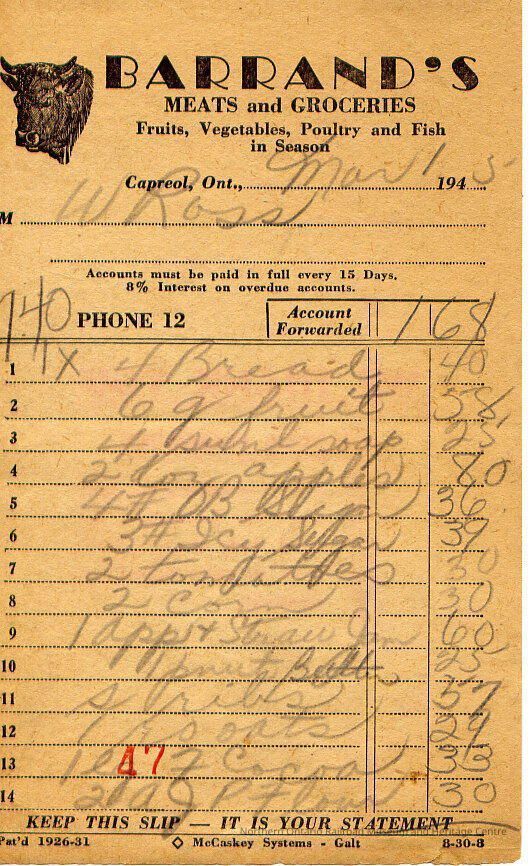 BARRAND'S
MEATS and GROCERIES
Fruits, Vegetables, Poultry and Fish
in Season
Capreol, Ont., Mar 1 194 5
M W Ross
Accounts must be paid in full every 15 Days.
8% Interest on overdue accounts.
740 PHONE 12 Account Forwarded 1 68
1 4 Bread 40
2 6 g fruit 58
3 4 soap 25
4 2 apples 80
5 4# 36
6 3# Icy Sugar 39
7 2 tomatoes 30
8 2 corn 30
9 1 app & Straw Jam 60
10 1 pnut Butter 25
11 S ribs 57
12 1 oats 29
13 47 Cocoa 33
14 30
KEEP THIS SLIP — IT IS YOUR STATEMENT
Northern Ontario Railroad Museum and Heritage Centre
Pat'd 1926-31 ◇ McCaskey Systems - Galt 8-30-8